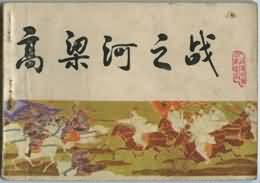 高梁河之战